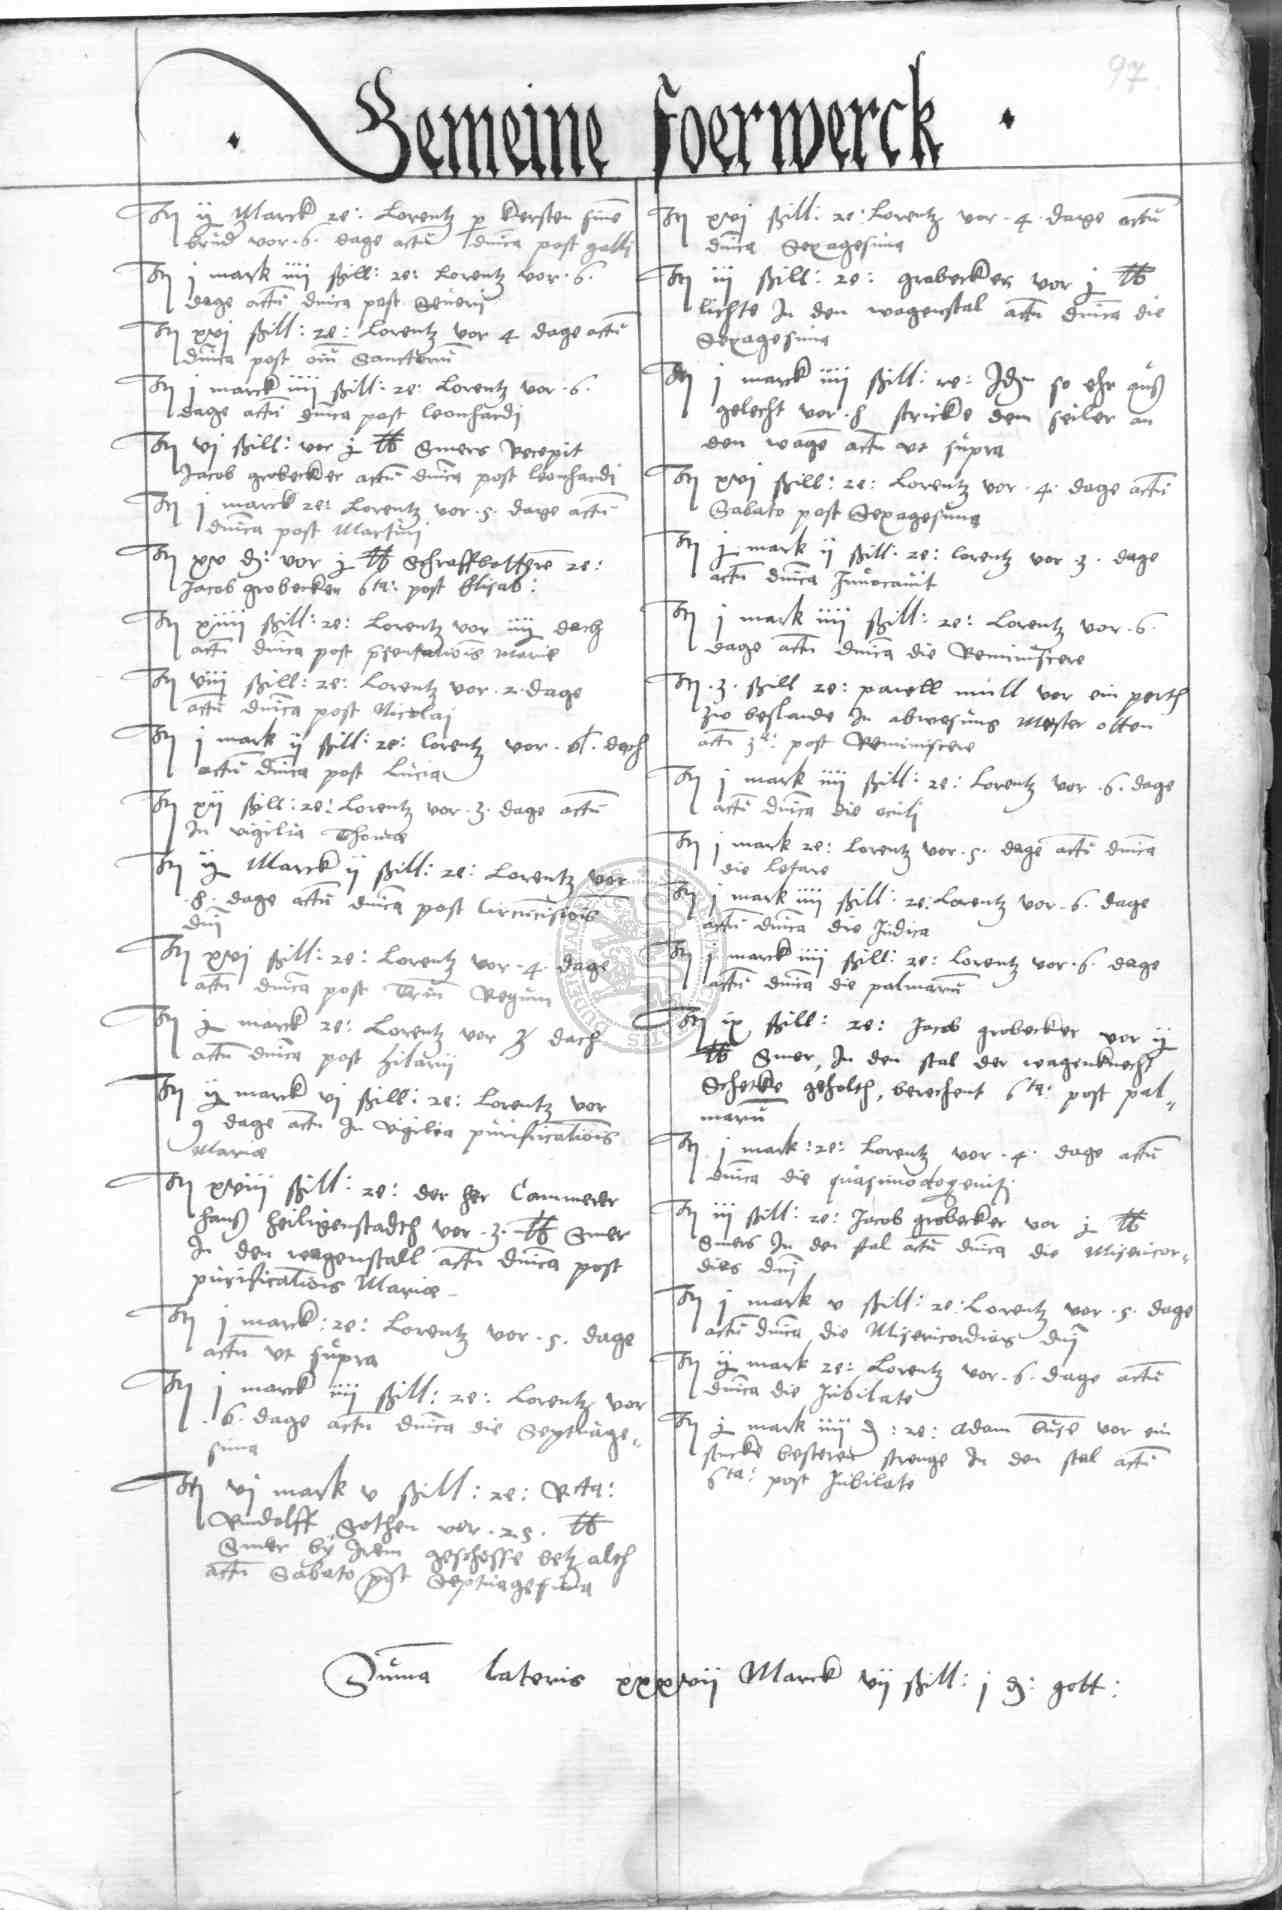 97
Gemeine Foerwerck
It ij Marck re: Lorentz p kersten sine
brud vor .6. dage actu dnica post galli
It j mark iiij ßill: re: Lorentz vor .6.
dage actu dnica post Seueri
It xvi ßill: re: Lorentz vor 4 dage actu
dnica post oiu Sanctoru
It j marck iiij ßill: re: Lorentz vor .6.
dage actu dnica post leonhardi
It vj ßill: vor j lb Smers Recepit
Jacob grobecker actu dnica post leonhardi
It j marck re: Lorentz vor .5. dage actu
dnica post Martini
It xv d: vor j lb re:
Jacob grobecker 6ta: post Elisab:
It xiiij ßill: re: Lorentz vor iiij dach
actu dnica post psentationis marie
It viij ßill: re: Lorentz vor .2. dage
actu dnica post Nicolaj
It j mark ij ßill: re: lorentz vor dach
actu dnica post Lucia
It xij ßill: re: Lorentz vor .3. dage actu
In vigilia Thome
It ij Marck ij ßill: re: Lorentz vor
.8. dage actu dnica post Circucisiois
dnj
It xvj ßill: re: Lorentz vor .4. dage
actu dnica post Triu Regum
It j marck re: Lorentz vor dach
actu dnica post hilarij
It ij marck vj ßill: re: Lorentz vor
9 dage actu In vigilia purificationis
Mariae
It xviij ßill: re: der her Cammerer
hanß heiligenstadth vor .3. lb Smer
In den wagenstall actu dnica post
purificationis Mariae
It j marck: re: Lorentz vor .5. dage
actu vt supra
It j marck iiij ßill: re: Lorentz vor
.6. dage actu dnica die Septuage-
sima
It vj mark v ßill: re: Rcta:
Rudolff Gothen vor .25. lb
Smer by Irem geschosse betzalth
actu Sabato post Septuagesima
It xvj ßill: re: Lorentz vor .4. dage actu
dnica Sexagesima
It iij ßill: re: grobecker vor j lb
lichte In den wagenstal actu dnica die
Sexagesima
It j marck iiij ßill: re: so ehr auß
gelecht vor .8 stricke dem seiler an
den wage actu vt supra
It xvj ßill: re: Lorentz vor .4. dage actu
Sabato post Sexagesima
It j mark ij ßill: re: lorentz vor 3. dage
actu dnica Inuocauit
It j mark iiij ßill: re: Lorentz vor .6.
dage actu dnica die Reminiscere
It .3. ßill re: pawell mull vor ein perth
zw beslande In abwesung Mester olten
actu post Reminiscere
It j mark iiij ßill: re: Lorentz vor .6. dage
actu dnica die oculi
It j mark re: Lorentz vor .5. dage actu dnica
die letare
It j mark iiij ßill: re: Lorentz vor .6. dage
actu dnica die Judica
It j marck iiij ßill: re: Lorentz vor .6. dage
actu dnica die palmaru
It ix ßill: re: Jacob grobecker vor ij
lb Smer, In den stal der wagenknecht
geholth, berechent 6ta: post pal-
maru
It j mark: re: Lorentz vor .4. dage actu
dnica die quasimodogeniti
It iij ßill: re: Jacob grobecker vor j lb
Smers In den stal actu dnica die Misericor-
dias dnj
It j mark v ßill: re: Lorentz vor .5. dage
actu dnica die Misericordias dnj
It ij mark re: Lorentz vor .6. dage actu
dnica die Jubilate
It j mark iiij d: re: Adam buse vor ein
stucke besteren strenge In den stal actu
6ta: post Jubilate
Suma lateris xxxvij Marck vij ßill: j d: gott: